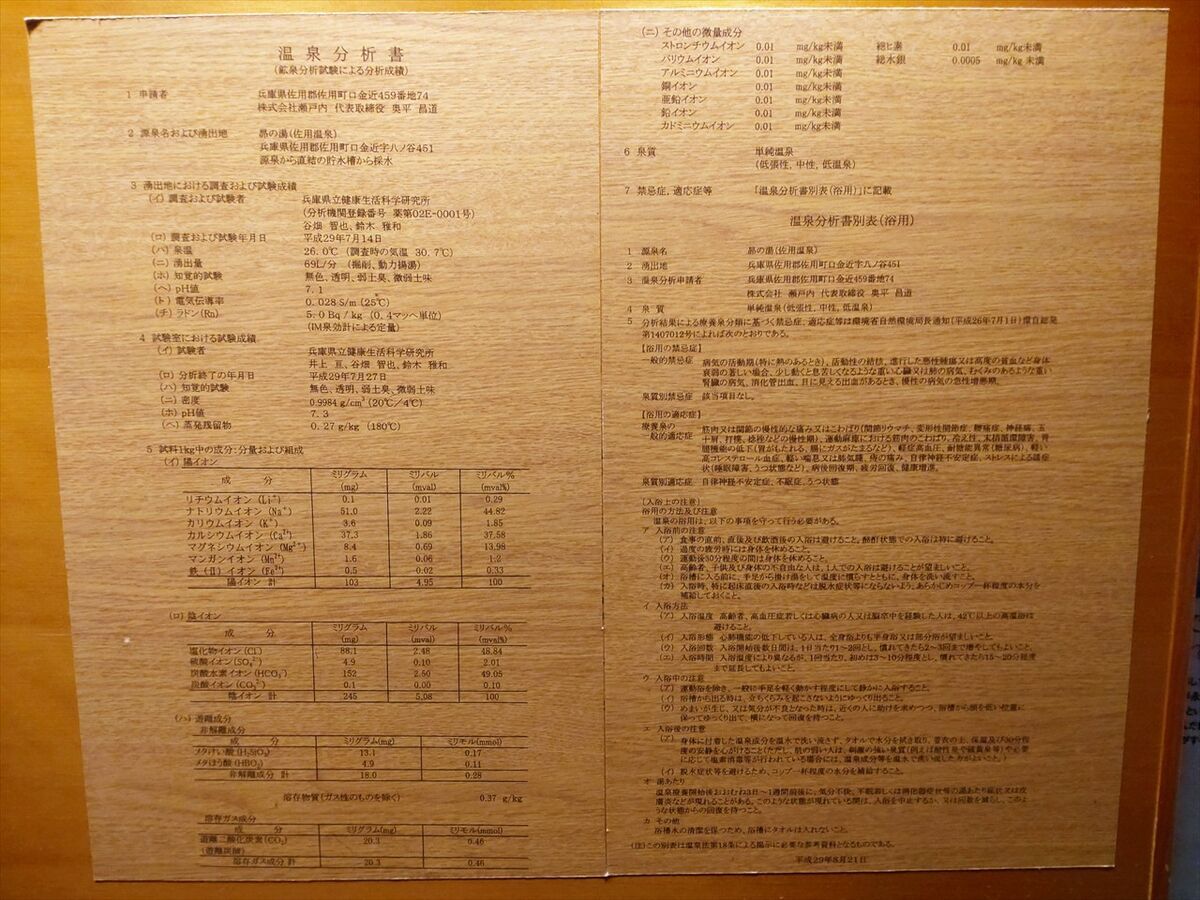 温泉分析書
(鉱泉分析試験による分析成績)
1 申請者 兵庫県佐用郡佐用町口金近459番地74
株式会社瀬戸内 代表取締役 奥平 昌道
2 源泉名および湧出地 昴の湯(佐用温泉)
兵庫県佐用郡佐用町口金近字八ノ谷451
源泉から直結の貯水槽から採水
3 湧出地における調査および試験成績
(イ) 調査および試験者 兵庫県立健康生活科学研究所
(分析機関登録番号 薬第02E-0001号)
谷畑 智也、鈴木 雅和
(ロ) 調査および試験年月日 平成29年7月14日
(ハ) 泉温 26.0℃ (調査時の気温 30.7℃)
(ニ) 湧出量 69L/分 (掘削、動力揚湯)
(ホ) 知覚的試験 無色、透明、弱土臭、微弱土味
(ヘ) pH値 7.1
(ト) 電気伝導率 0.028 S/m (25℃)
(チ) ラドン(Rn) 5.0 Bq / kg (0.4マッヘ単位)
(IM泉効計による定量)
4 試験室における試験成績
(イ) 試験者 兵庫県立健康生活科学研究所
井上 亘、谷畑 智也、鈴木 雅和
(ロ) 分析終了の年月日 平成29年7月27日
(ハ) 知覚的試験 無色、透明、弱土臭、微弱土味
(ニ) 密度 0.9984 g/cm³ (20℃/4℃)
(ホ) pH値 7.3
(ヘ) 蒸発残留物 0.27 g/kg (180℃)
5 試料1kg中の成分:分量および組成
(イ) 陽イオン
成 分 ミリグラム(mg) ミリバル(mval) ミリバル%(mval%)
リチウムイオン (Li⁺) 0.1 0.01 0.29
ナトリウムイオン (Na⁺) 51.0 2.22 44.82
カリウムイオン (K⁺) 3.6 0.09 1.85
カルシウムイオン (Ca²⁺) 37.3 1.86 37.58
マグネシウムイオン (Mg²⁺) 8.4 0.69 13.98
マンガンイオン (Mn²⁺) 1.6 0.06 1.2
鉄 (Ⅱ) イオン (Fe²⁺) 0.5 0.02 0.33
陽イオン 計 103 4.95 100
(ロ) 陰イオン
成 分 ミリグラム(mg) ミリバル(mval) ミリバル%(mval%)
塩化物イオン (Cl⁻) 88.1 2.48 48.84
硫酸イオン (SO₄²⁻) 4.9 0.10 2.01
炭酸水素イオン (HCO₃⁻) 152 2.50 49.05
炭酸イオン (CO₃²⁻) 0.1 0.00 0.10
陰イオン 計 245 5.08 100
(ハ) 遊離成分
非解離成分
成 分 ミリグラム(mg) ミリモル(mmol)
メタけい酸 (H₂SiO₃) 13.1 0.17
メタほう酸 (HBO₂) 4.9 0.11
非解離成分 計 18.0 0.28
溶存物質(ガス性のものを除く) 0.37 g/kg
溶存ガス成分
成 分 ミリグラム(mg) ミリモル(mmol)
遊離二酸化炭素 (CO₂) 20.3 0.46
(遊離炭酸)
溶存ガス成分 計 20.3 0.46
(ニ) その他の微量成分
ストロンチウムイオン 0.01 mg/kg未満 総ヒ素 0.01 mg/kg未満
バリウムイオン 0.01 mg/kg未満 総水銀 0.0005 mg/kg 未満
アルミニウムイオン 0.01 mg/kg未満
銅イオン 0.01 mg/kg未満
亜鉛イオン 0.01 mg/kg未満
鉛イオン 0.01 mg/kg未満
カドミニウムイオン 0.01 mg/kg未満
6 泉質 単純温泉
(低張性、中性、低温泉)
7 禁忌症、適応症等 「温泉分析書別表(浴用)」に記載
温泉分析書別表(浴用)
1 源泉名 昴の湯(佐用温泉)
2 湧出地 兵庫県佐用郡佐用町口金近字八ノ谷451
3 温泉分析申請者 兵庫県佐用郡佐用町口金近459番地74
株式会社 瀬戸内 代表取締役 奥平 昌道
4 泉 質 単純温泉(低張性、中性、低温泉)
5 分析結果による療養泉分類に基づく禁忌症、適応症等は環境省自然環境局長通知(平成26年7月1日)環自総発
第1407012号によれば次のとおりである。
【浴用の禁忌症】
一般的禁忌症 病気の活動期(特に熱のあるとき)、活動性の結核、進行した悪性腫瘍又は高度の貧血など身体
衰弱の著しい場合、少し動くと息苦しくなるような重い心臓又は肺の病気、むくみのあるような重い
腎臓の病気、消化管出血、目に見える出血があるとき、慢性の病気の急性増悪期。
泉質別禁忌症 該当項目なし。
【浴用の適応症】
療養泉の
一般的適応症 筋肉又は関節の慢性的な痛み又はこわばり(関節リウマチ、変形性関節症、腰痛症、神経痛、五
十肩、打撲、捻挫などの慢性期)、運動麻痺における筋肉のこわばり、冷え性、末梢循環障害、胃
腸機能の低下(胃がもたれる、腸にガスがたまるなど)、軽症高血圧、耐糖能異常(糖尿病)、軽い
高コレステロール血症、軽い喘息又は肺気腫、痔の痛み、自律神経不安定症、ストレスによる諸症
状(睡眠障害、うつ状態など)、病後回復期、疲労回復、健康増進。
泉質別適応症 自律神経不安定症、不眠症、うつ状態
[入浴上の注意]
浴用の方法及び注意
温泉の浴用は、以下の事項を守って行う必要がある。
ア 入浴前の注意
(ア) 食事の直前、直後及び飲酒後の入浴は避けること。酩酊状態での入浴は特に避けること。
(イ) 過度の疲労時には身体を休めること。
(ウ) 運動後30分程度の間は身体を休めること。
(エ) 高齢者、子供及び身体の不自由な人は、1人での入浴は避けることが望ましいこと。
(オ) 浴槽に入る前に、手足から掛け湯をして温度に慣らすとともに、身体を洗い流すこと。
(カ) 入浴時、特に起床直後の入浴時などは脱水症状等にならないよう、あらかじめコップ一杯程度の水分を
補給しておくこと。
イ 入浴方法
(ア) 入浴温度 高齢者、高血圧症若しくは心臓病の人又は脳卒中を経験した人は、42℃以上の高温浴は
避けること。
(イ) 入浴形態 心肺機能の低下している人は、全身浴よりも半身浴又は部分浴が望ましいこと。
(ウ) 入浴回数 入浴開始後数日間は、1日当たり1~2回とし、慣れてきたら2~3回まで増やしてもよいこと。
(エ) 入浴時間 入浴温度により異なるが、1回当たり、初めは3~10分程度とし、慣れてきたら15~20分程度
まで延長してもよいこと。
ウ 入浴中の注意
(ア) 運動浴を除き、一般に手足を軽く動かす程度にして静かに入浴すること。
(イ) 浴槽から出る時は、立ちくらみを起こさないようにゆっくり出ること。
(ウ) めまいが生じ、又は気分が不良となった時は、近くの人に助けを求めつつ、浴槽から頭を低い位置に
保ってゆっくり出て、横になって回復を待つこと。
エ 入浴後の注意
(ア) 身体に付着した温泉成分を温水で洗い流さず、タオルで水分を拭き取り、着衣の上、保温及び30分程
度の安静を心がけること(ただし、肌の弱い人は、刺激の強い泉質(例えば酸性泉や硫黄泉等)や必要
に応じて塩素消毒等が行われている場合には、温泉成分等を温水で洗い流した方がよいこと。)
(イ) 脱水症状等を避けるため、コップ一杯程度の水分を補給すること。
オ 湯あたり
温泉療養開始後おおむね3日~1週間前後に、気分不快、不眠若しくは消化器症状等の湯あたり症状又は皮
膚炎などが現れることがある。このような状態が現れている間は、入浴を中止するか、又は回数を減らし、このよ
うな状態からの回復を待つこと。
カ その他
浴槽水の清潔を保つため、浴槽にタオルは入れないこと。
(注)この別表は温泉法第18条による掲示に必要な参考資料となるものである。
平成29年8月21日